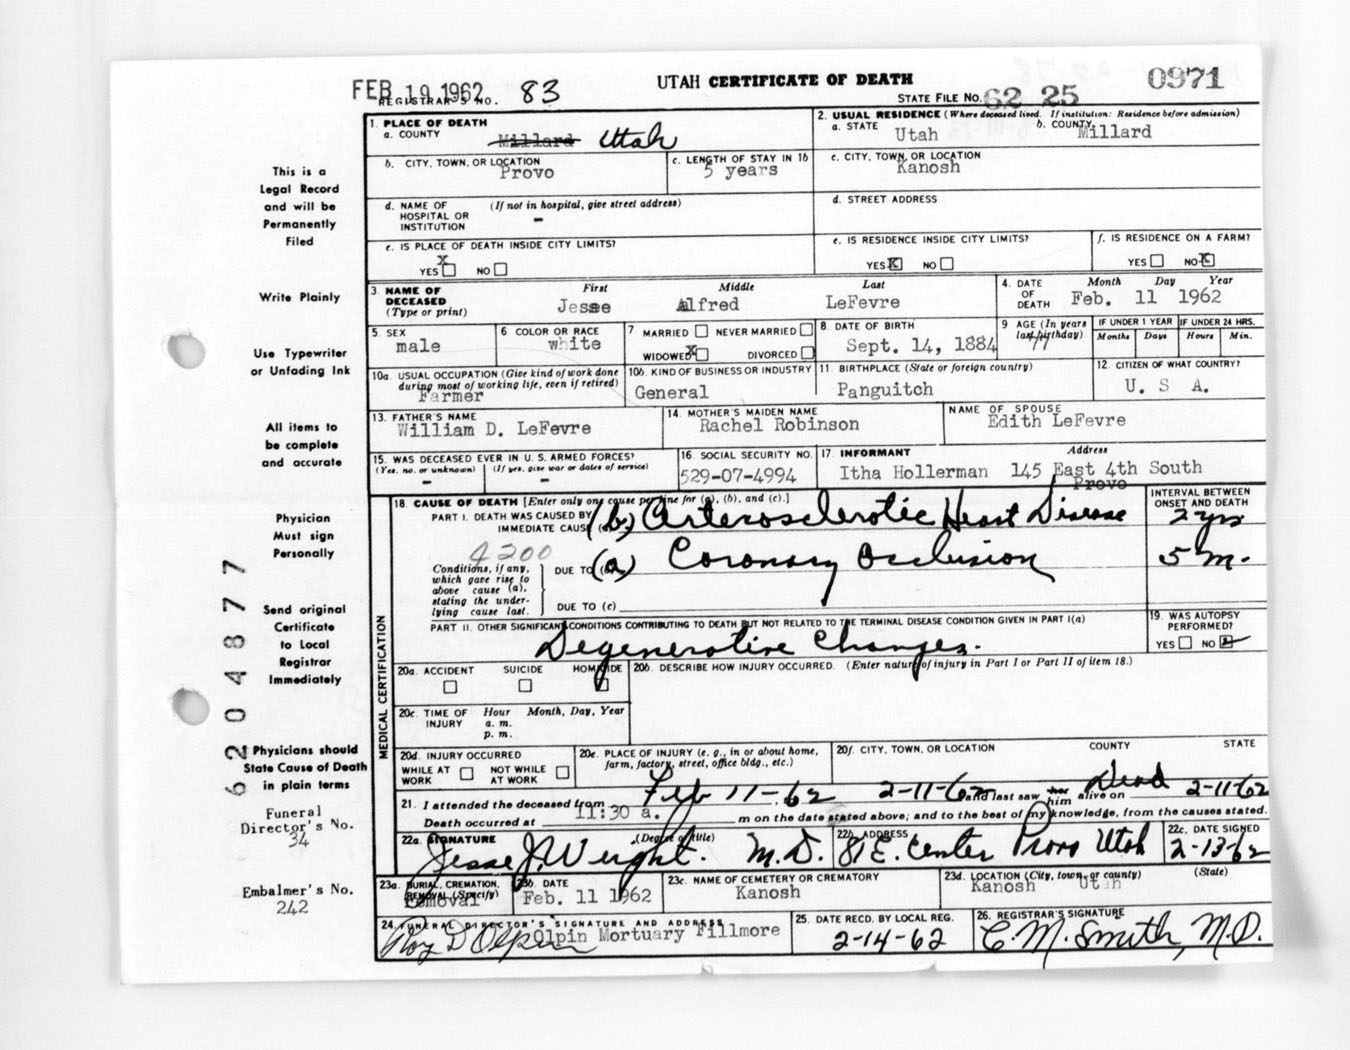 FEB 19 1962
REGISTRAR'S NO. 83
UTAH CERTIFICATE OF DEATH
0971
STATE FILE NO. 62 25
1. PLACE OF DEATH
a. COUNTY Millard Utah
2. USUAL RESIDENCE (Where deceased lived. If institution: Residence before admission)
a. STATE Utah b. COUNTY Millard
b. CITY, TOWN, OR LOCATION Provo
c. LENGTH OF STAY IN 1b 5 years
c. CITY, TOWN, OR LOCATION Kanosh
d. NAME OF HOSPITAL OR INSTITUTION (If not in hospital, give street address) –
d. STREET ADDRESS
e. IS PLACE OF DEATH INSIDE CITY LIMITS?
YES X NO
e. IS RESIDENCE INSIDE CITY LIMITS?
YES X NO
f. IS RESIDENCE ON A FARM?
YES NO X
3. NAME OF DECEASED (Type or print)
First Middle Last
Jesse Alfred LeFevre
4. DATE OF DEATH Month Day Year
Feb. 11 1962
5. SEX male
6 COLOR OR RACE white
7 MARRIED NEVER MARRIED
WIDOWED X DIVORCED
8. DATE OF BIRTH Sept. 14, 1884
9 AGE (In years last birthday) 77
IF UNDER 1 YEAR Months Days
IF UNDER 24 HRS. Hours Min.
10a. USUAL OCCUPATION (Give kind of work done during most of working life, even if retired) Farmer
10b. KIND OF BUSINESS OR INDUSTRY General
11. BIRTHPLACE (State or foreign country) Panguitch
12. CITIZEN OF WHAT COUNTRY? U. S A.
13. FATHER'S NAME William D. LeFevre
14. MOTHER'S MAIDEN NAME Rachel Robinson
NAME OF SPOUSE Edith LeFevre
15. WAS DECEASED EVER IN U. S. ARMED FORCES?
(Yes, no. or unknown) (If yes, give war or dates of service)
– –
16. SOCIAL SECURITY NO. 529-07-4994
17. INFORMANT Address
Itha Hollerman 145 East 4th South
Provo
MEDICAL CERTIFICATION
18. CAUSE OF DEATH [Enter only one cause per line for (a), (b), and (c).]
INTERVAL BETWEEN ONSET AND DEATH
PART I. DEATH WAS CAUSED BY
IMMEDIATE CAUSE (b) Arterosclerotic Heart Disease 2 yrs
4200
Conditions, if any, which gave rise to above cause (a), stating the underlying cause last.
DUE TO (a) Coronary Occlusion 5 m.
DUE TO (c)
PART II. OTHER SIGNIFICANT CONDITIONS CONTRIBUTING TO DEATH BUT NOT RELATED TO THE TERMINAL DISEASE CONDITION GIVEN IN PART I(a)
Degenerative Changes.
19. WAS AUTOPSY PERFORMED?
YES NO
20a. ACCIDENT SUICIDE HOMICIDE
20b. DESCRIBE HOW INJURY OCCURRED. (Enter nature of injury in Part I or Part II of item 18.)
20c. TIME OF INJURY Hour Month, Day, Year
a. m.
p. m.
20d. INJURY OCCURRED
WHILE AT WORK NOT WHILE AT WORK
20e. PLACE OF INJURY (e. g., in or about home, farm, factory, street, office bldg., etc.)
20f. CITY, TOWN, OR LOCATION COUNTY STATE
21. I attended the deceased from Feb 11-62 2-11-62 and last saw her him alive on Dead 2-11-62
Death occurred at 11:30 a. m on the date stated above; and to the best of my knowledge, from the causes stated.
22a. SIGNATURE (Degree or title)
Jesse J. Weight. M.D.
22b. ADDRESS 81 E. Center Provo Utah
22c. DATE SIGNED 2-13-62
23a. BURIAL, CREMATION, REMOVAL (Specify) Removal
23b. DATE Feb. 11 1962
23c. NAME OF CEMETERY OR CREMATORY Kanosh
23d. LOCATION (City, town, or county) (State)
Kanosh Utah
24. FUNERAL DIRECTOR'S SIGNATURE AND ADDRESS
Roy D Olpin Olpin Mortuary Fillmore
25. DATE RECD. BY LOCAL REG. 2-14-62
26. REGISTRAR'S SIGNATURE C. M. Smith, M.D.
This is a
Legal Record
and will be
Permanently
Filed
Write Plainly
Use Typewriter
or Unfading Ink
All items to
be complete
and accurate
Physician
Must sign
Personally
Send original
Certificate
to Local
Registrar
Immediately
Physicians should
State Cause of Death
in plain terms
Funeral
Director's No.
34
Embalmer's No.
242
6204877